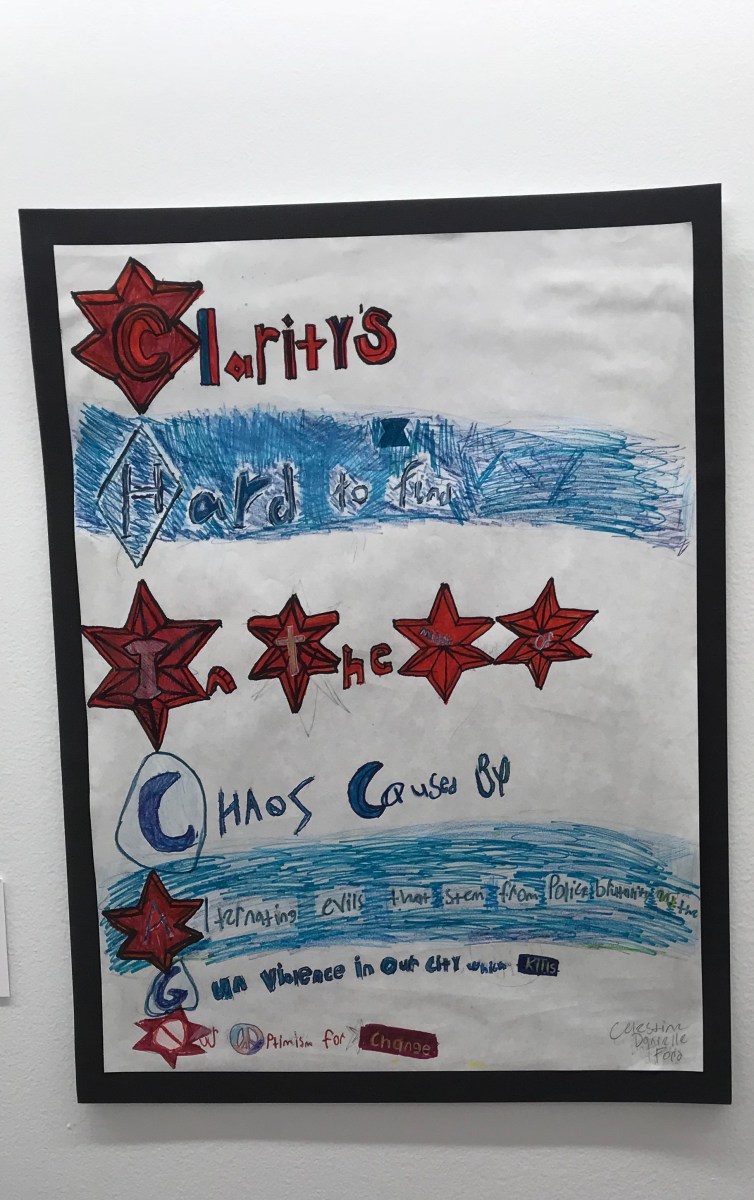 Clarity's
Hard to find
In the of
CHAOS Caused By
Alternating evils that stem from Police brutality the
Gun Violence in Our City which Kills
Our Optimism for Change
Celestine
Danielle
Ford